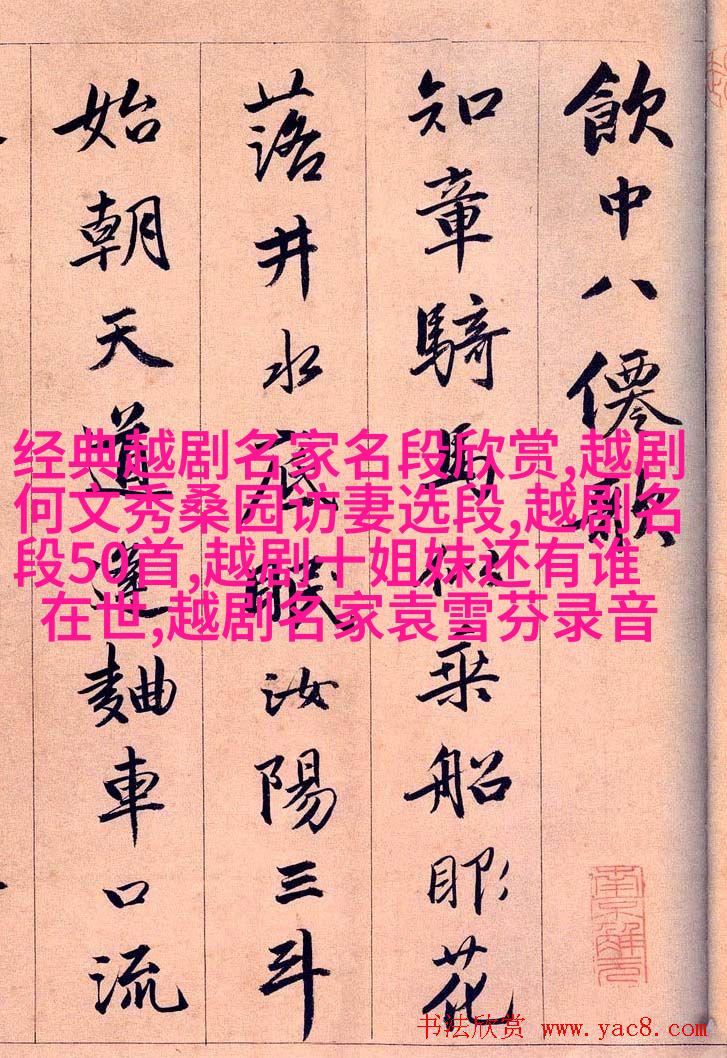 飲中八僊歌
知章騎馬似乘船眼花
落井水底眠汝陽三斗
始朝天道逢麯車口流
经典越剧名家名段欣赏,越剧
何文秀桑园访妻选段,越剧名
段50首,越剧十姐妹还有谁
在世,越剧名家袁雪芬录音
南京解元
书法欣赏 www.yac8.com